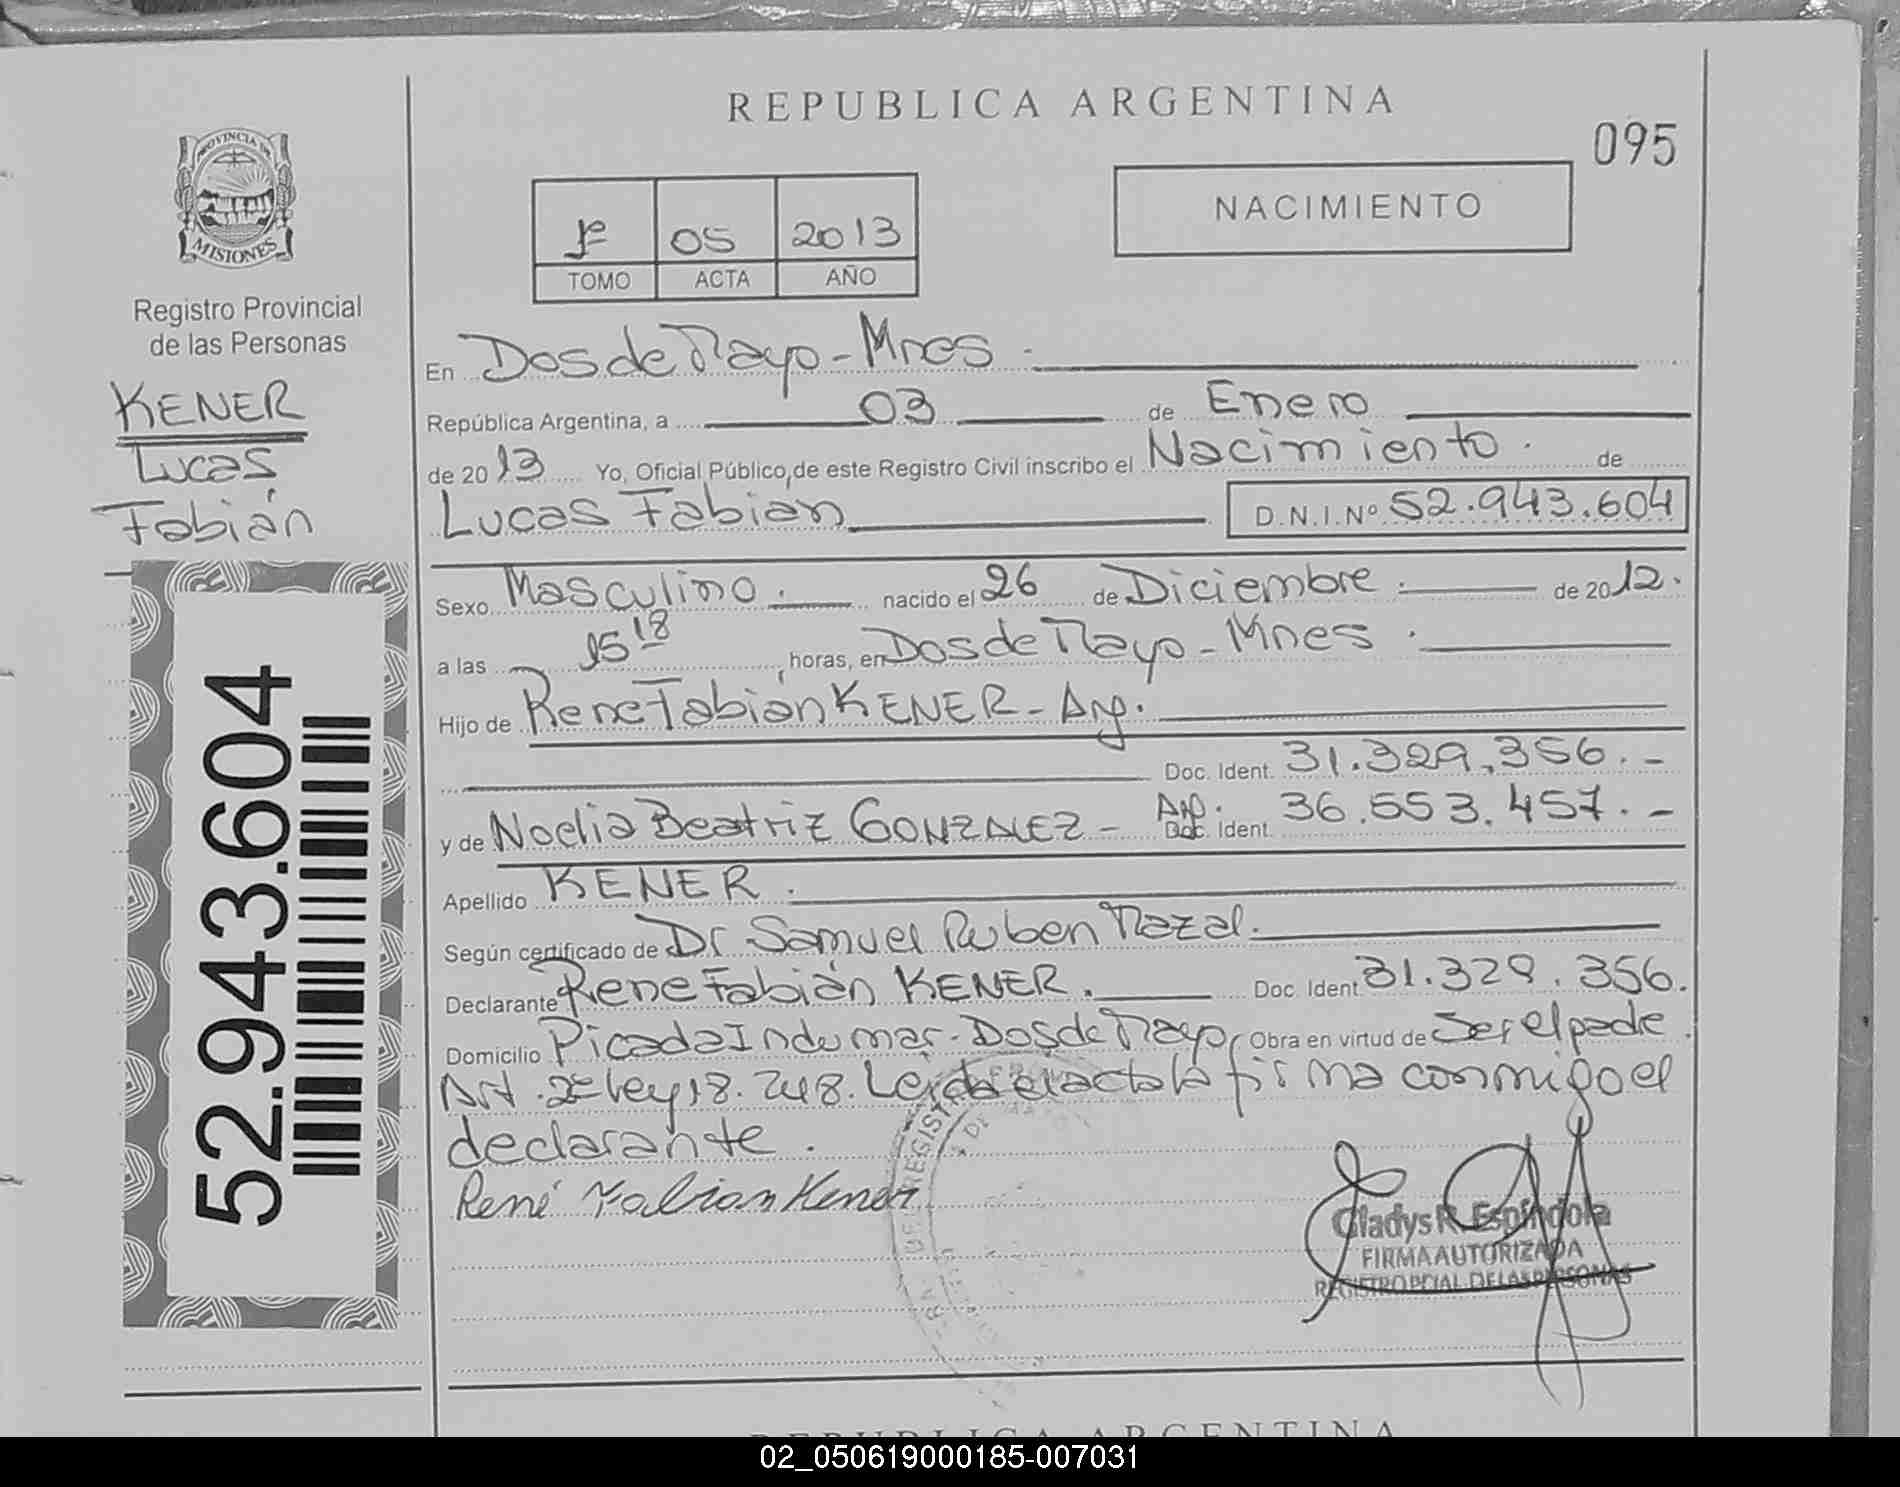 REPUBLICA ARGENTINA
095
PROVINCIA DE
MISIONES
Registro Provincial
de las Personas
KENER
Lucas
Fabián
52.943.604
1º 05 2013
TOMO ACTA AÑO
NACIMIENTO
En Dos de Mayo - Mnes
República Argentina, a 03 de Enero
de 2013 Yo, Oficial Público, de este Registro Civil inscribo el Nacimiento. de
Lucas Fabian D.N.I.Nº 52.943.604
Sexo Masculino. nacido el 26 de Diciembre. de 2012.
a las 15 18 horas, en Dos de Mayo - Mnes.
Hijo de Rene Fabián KENER - Arg.
Doc. Ident. 31.329.356. -
y de Noelia Beatriz GONZALEZ - Arg. Doc. Ident. 36.553.457. -
Apellido KENER.
Según certificado de Dr Samuel Ruben Mazal.
Declarante Rene Fabián KENER. Doc. Ident. 31.329.356.
Domicilio Picada Indumar - Dos de Mayo Obra en virtud de Ser el padre.
Art. 2º Ley 18.248. Leída el acta la firma conmigo el
declarante.
René Fabian Kener
Gladys R. Espíndola
FIRMA AUTORIZADA
REGISTRO PCIAL. DE LAS PERSONAS
REPUBLICA ARGENTINA
02_050619000185-007031